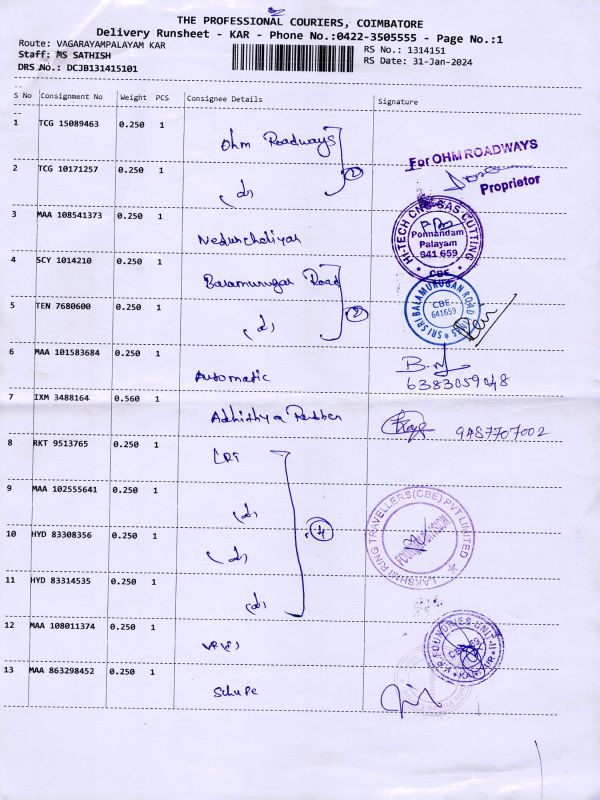 THE PROFESSIONAL COURIERS, COIMBATORE
Delivery Runsheet - KAR - Phone No.:0422-3505555 - Page No.:1
Route: VAGARAYAMPALAYAM KAR
RS No.: 1314151
Staff: MS SATHISH
RS Date: 31-Jan-2024
DRS No.: DCJB131415101
S No Consignment No Weight PCS Consignee Details Signature
1 TCG 15089463 0.250 1 Ohm Roadways
For OHM ROADWAYS
Proprietor
2 TCG 10171257 0.250 1 (d) 2
3 MAA 108541373 0.250 1 Neduncheliyan
HI-TECH CNC GAS CUTTING
Ponnandam
Palayam
641 659
CBE
4 SCY 1014210 0.250 1 Balamurugan Road
5 TEN 7680600 0.250 1 (d) 2
SRI SRI BALAMURUGAN ROAD
CBE
641659
6 MAA 101583684 0.250 1 Automatic
6383059048
7 IXM 3488164 0.560 1 Adhithya Rubber
9487707002
8 RKT 9513765 0.250 1 LRT
9 MAA 102555641 0.250 1 (d)
LAKSHMI RING TRAVELLERS(CBE) PVT LIMITED
FOUNDRY DIVISION
10 HYD 83308356 0.250 1 (d) 4
11 HYD 83314535 0.250 1 (d)
12 MAA 108011374 0.250 1
V.P. FOUNDRIES-UNIT-II
13 MAA 863298452 0.250 1